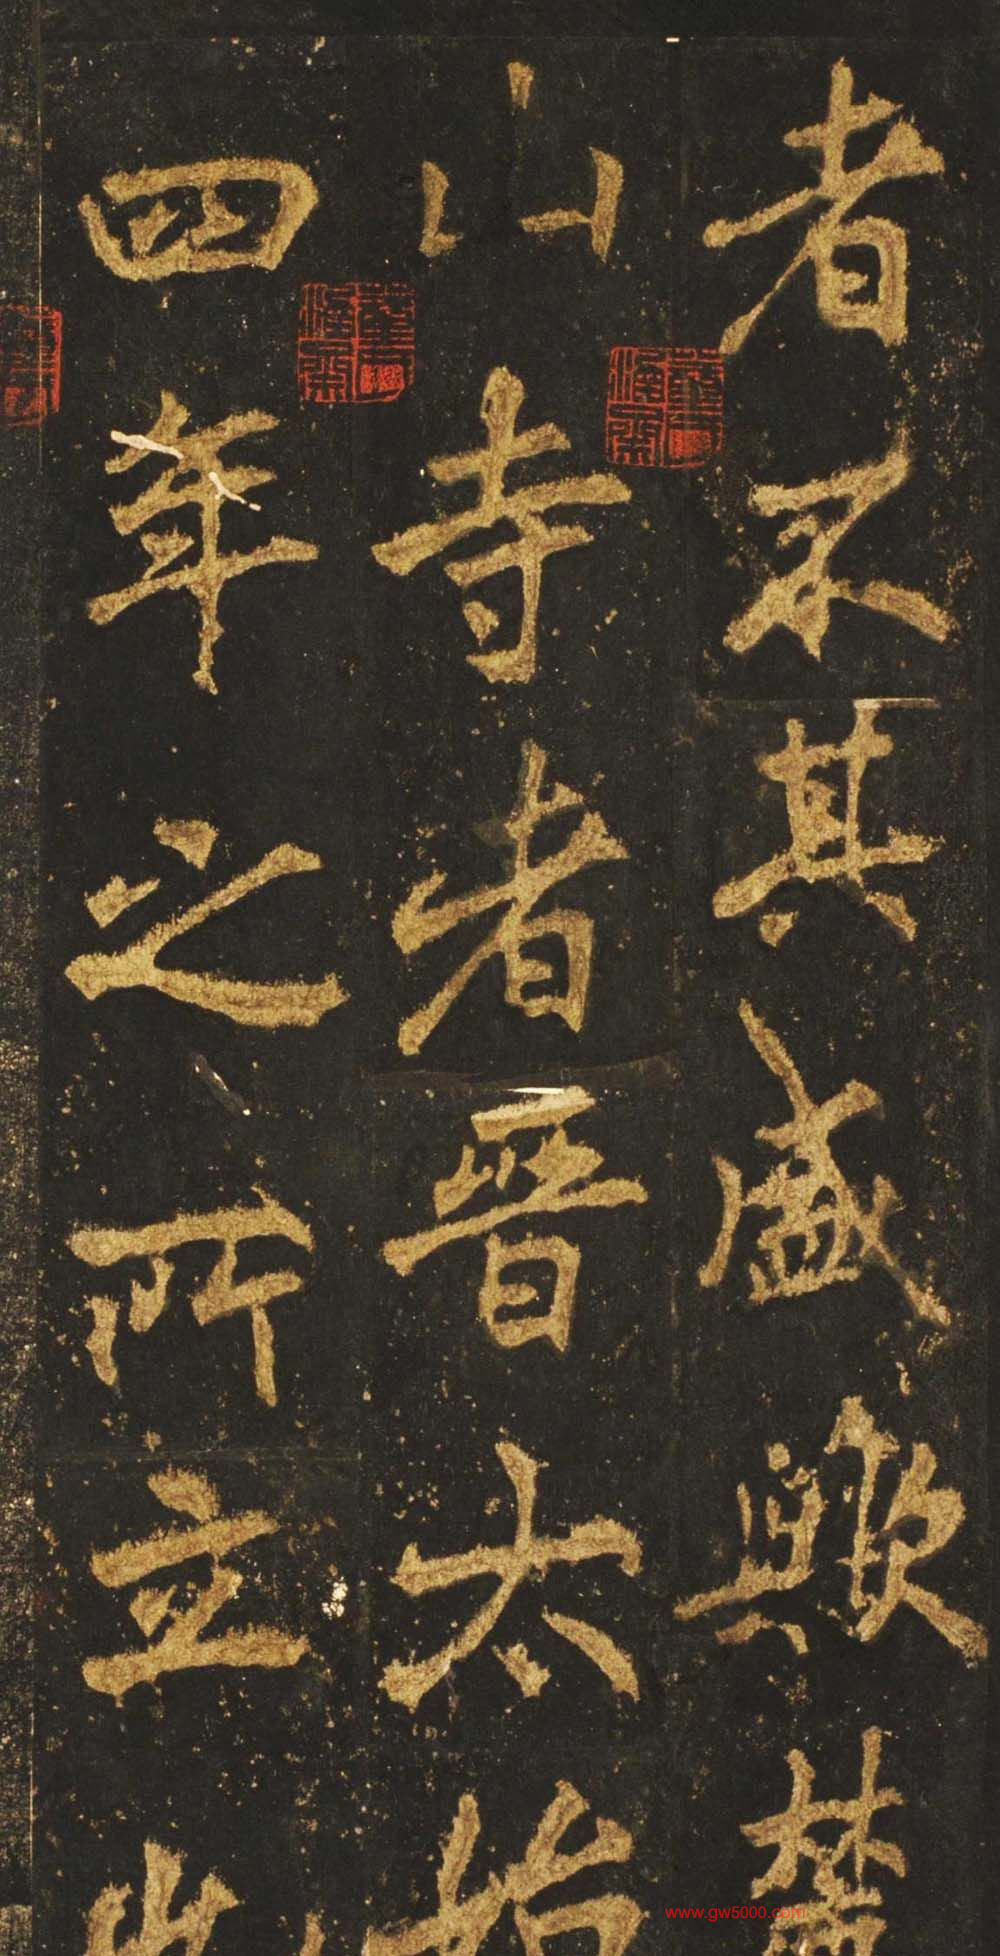 者不其盛歟麓
山寺者晋太始
四年之所立也
www.gw5000.com